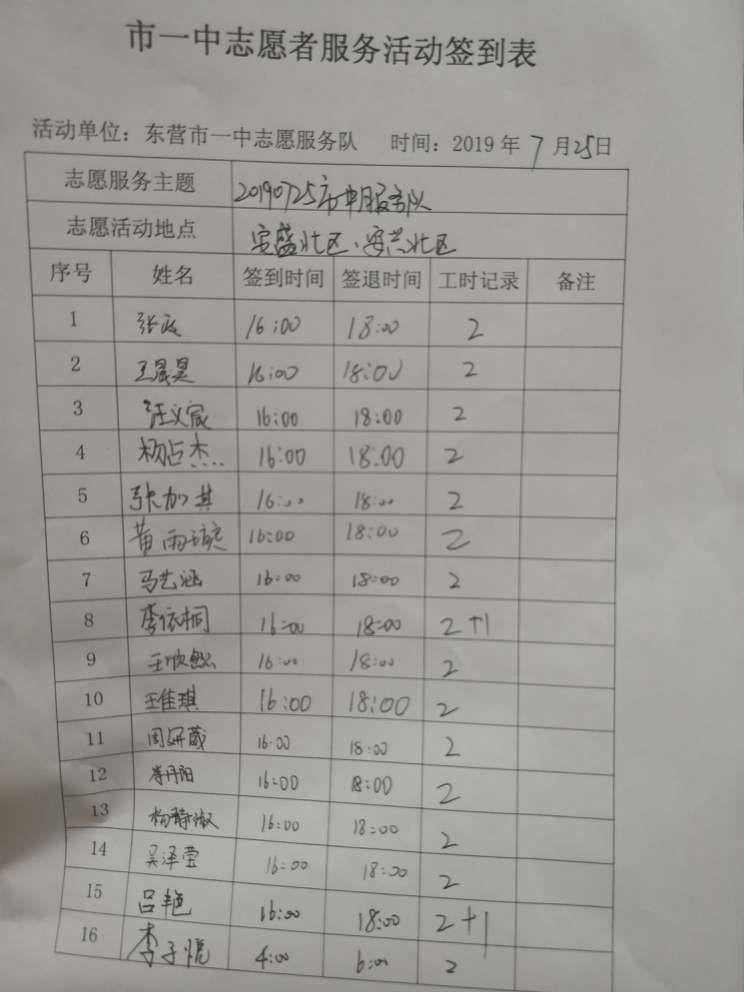 市一中志愿者服务活动签到表
活动单位：东营市一中志愿服务队 时间：2019年7月25日
志愿服务主题 20190725市一中服务队
志愿活动地点 安盛北区、安兴北区
序号 姓名 签到时间 签退时间 工时记录 备注
1 16:00 18:00 2
2 王晟昊 16:00 18:00 2
3 汪义宸 16:00 18:00 2
4 杨占杰 16:00 18:00 2
5 张加琪 16:00 18:00 2
6 黄雨璇 16:00 18:00 2
7 马艺涵 16:00 18:00 2
8 李依桐 16:00 18:00 2+1
9 王欣然 16:00 18:00 2
10 王佳琪 16:00 18:00 2
11 周妍葳 16:00 18:00 2
12 李丹阳 16:00 18:00 2
13 杨静淑 16:00 18:00 2
14 吴泽莹 16:00 18:00 2
15 吕艳 16:00 18:00 2+1
16 李子悦 4:00 6:00 2